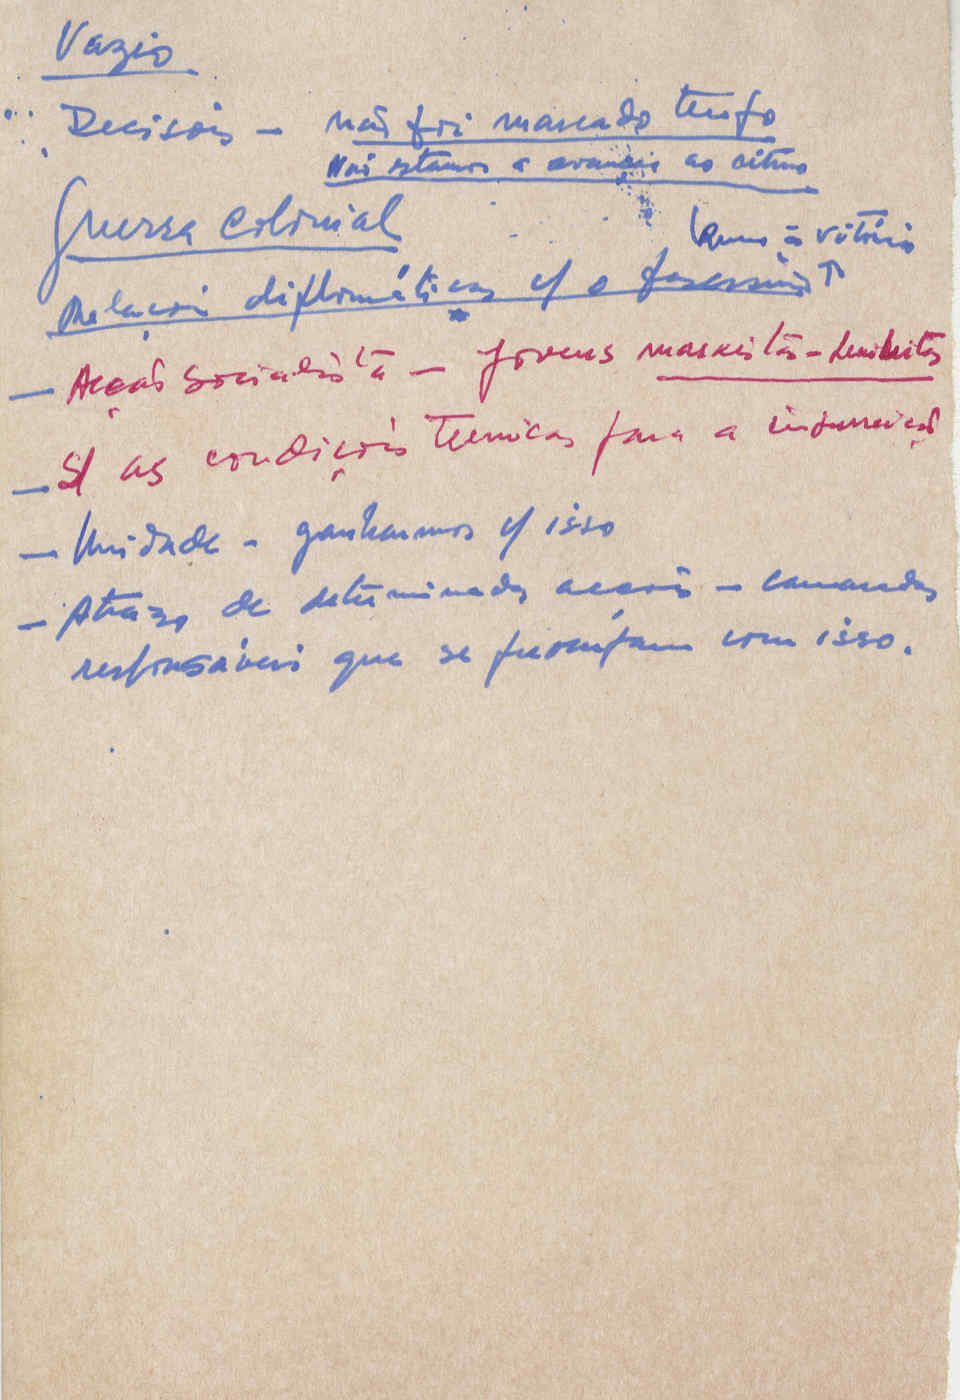 Vazio
Decisões – não foi marcado tempo
Não estamos a avançar ao ritmo
Guerra Colonial
à vitória
Relações diplomáticas c/ o fascismo ↑
– Acção Socialista – jovens marxistas-leninistas
– S/ as condições tecnicas para a insurreição
– Unidade – ganharmos c/ isso
– Atrazo de determinadas acções – camaradas
responsáveis que se preocupam com isso.